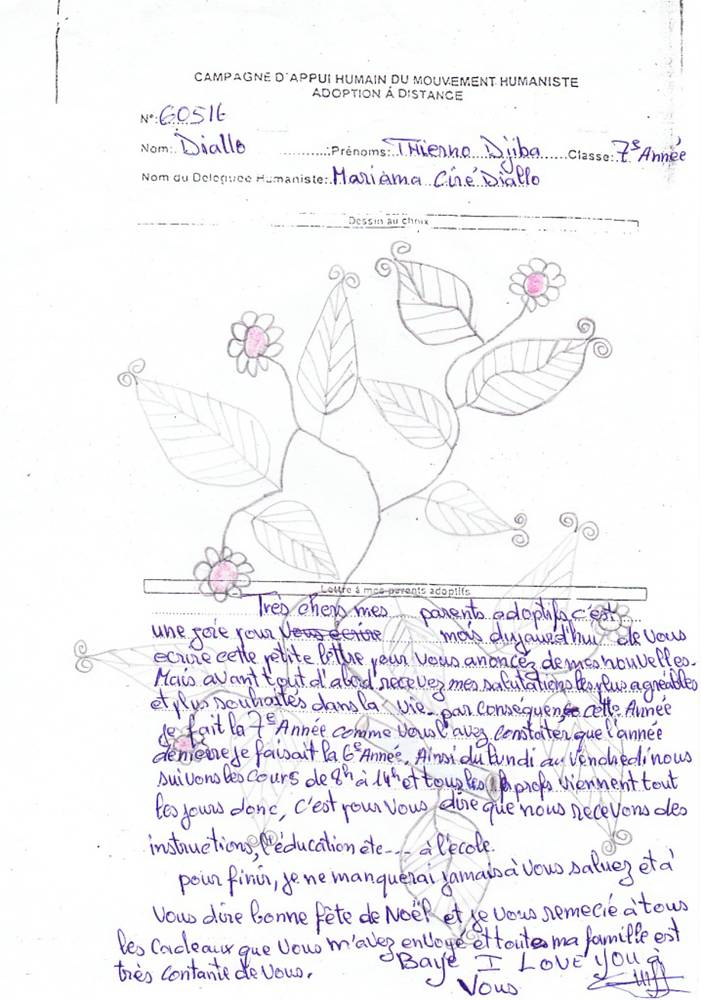 CAMPAGNE D'APPUI HUMAIN DU MOUVEMENT HUMANISTE
ADOPTION Á DISTANCE
N°: 60516
Nom: Diallo Prénoms: THierno Djiba Classe: 7e Année
Nom du Deleguee Humaniste: Mariama Ciré Diallo
Dessin au choix
Lettre à mes parents adoptifs
Très chers mes parents adoptifs c'est
une joie pour vous ecrire mois dujourd'hui de vous
ecrire cette petite lettre pour vous anoncez de mes nouvelles.
Mais avant tout d'abord recevez mes salutations les plus agréables
et plus souhaités dans la vie. par conséquence cette Année
je fait la 7e Année comme vous l'avez constater que l'année
dernière je faisait la 6e Année. Ainsi du lundi au vendredi nous
suivons les cours de 8h à 14h et tous les profs viennent tout
les jours donc, c'est pour vous dire que nous recevons des
instructions, l'éducation ete--- à l'école.
pour finir, je ne manquerai jamais à vous saluez et à
vous dire bonne fête de Noël et je vous remecié à tous
les cadeaux que vous m'avez envoyé et toutes ma famille est
très contante de vous. Baye I LOVE YOU à
Vous